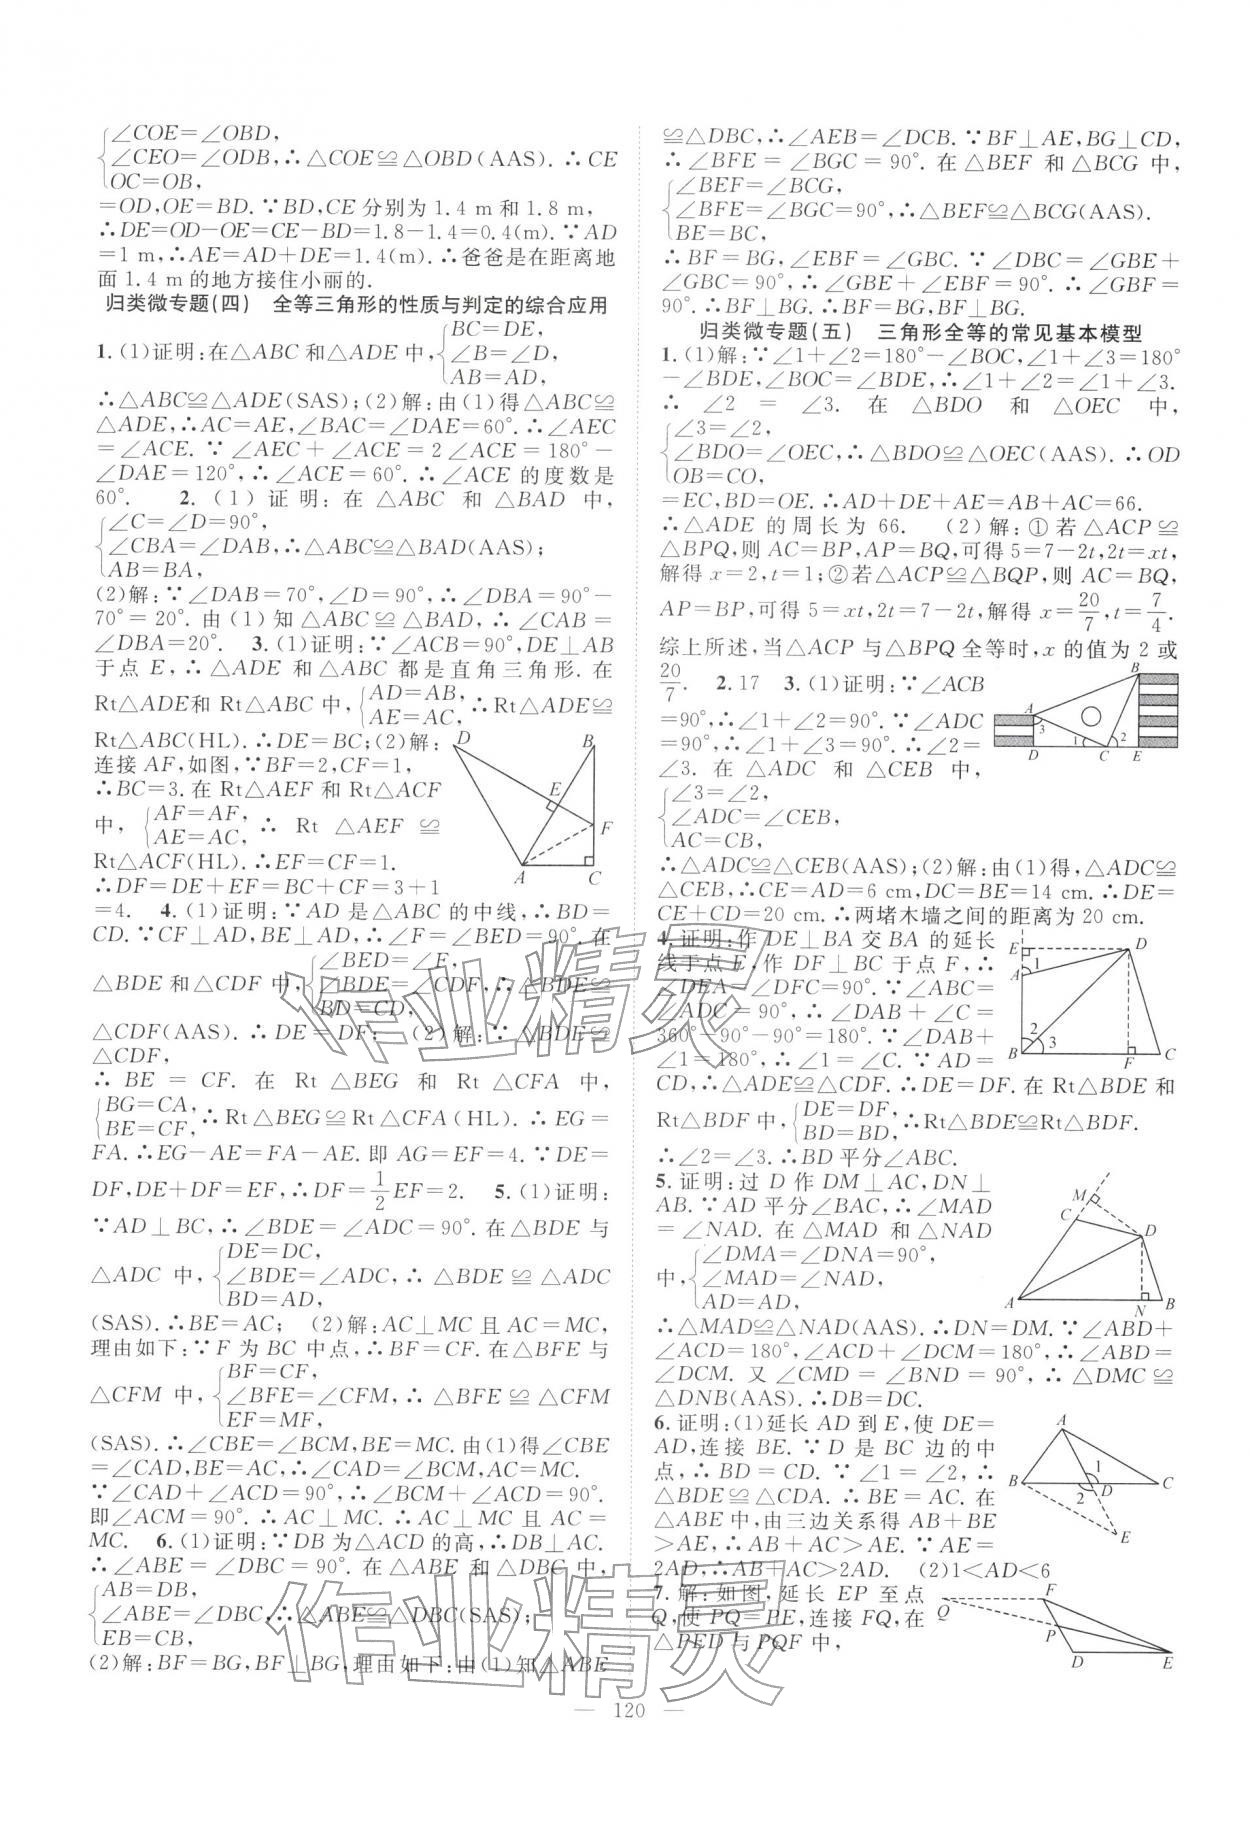 {∠COE=∠OBD,
∠CEO=∠ODB,∴△COE≌△OBD(AAS).∴CE
OC=OB,
=OD,OE=BD.∵BD,CE分别为1.4 m和1.8 m,
∴DE=OD-OE=CE-BD=1.8-1.4=0.4(m).∵AD
=1 m,∴AE=AD+DE=1.4(m).∴爸爸是在距离地
面1.4 m的地方接住小丽的.
归类微专题(四) 全等三角形的性质与判定的综合应用
1.(1)证明:在△ABC和△ADE中,{BC=DE,
∠B=∠D,
AB=AD,
∴△ABC≌△ADE(SAS);(2)解:由(1)得△ABC≌
△ADE,∴AC=AE,∠BAC=∠DAE=60°.∴∠AEC
=∠ACE.∵∠AEC+∠ACE=2∠ACE=180°-
∠DAE=120°,∴∠ACE=60°.∴∠ACE的度数是
60°. 2.(1)证明:在△ABC和△BAD中,
{∠C=∠D=90°,
∠CBA=∠DAB,∴△ABC≌△BAD(AAS);
AB=BA,
(2)解:∵∠DAB=70°,∠D=90°,∴∠DBA=90°-
70°=20°.由(1)知△ABC≌△BAD,∴∠CAB=
∠DBA=20°. 3.(1)证明:∵∠ACB=90°,DE⊥AB
于点E,∴△ADE和△ABC都是直角三角形.在
Rt△ADE和Rt△ABC中,{AD=AB,
AE=AC,∴Rt△ADE≌
Rt△ABC(HL).∴DE=BC;(2)解:
连接AF,如图,∵BF=2,CF=1,
∴BC=3.在Rt△AEF和Rt△ACF
中,{AF=AF,
AE=AC,∴Rt△AEF≌
Rt△ACF(HL).∴EF=CF=1.
∴DF=DE+EF=BC+CF=3+1
D B E F A C
=4. 4.(1)证明:∵AD是△ABC的中线,∴BD=
CD.∵CF⊥AD,BE⊥AD,∴∠F=∠BED=90°.在
△BDE和△CDF中,{∠BED=∠F,
∠BDE=∠CDF,∴△BDE≌
BD=CD,
△CDF(AAS).∴DE=DF; (2)解:∵△BDE≌
△CDF,
∴BE=CF.在Rt△BEG和Rt△CFA中,
{BG=CA,
BE=CF,∴Rt△BEG≌Rt△CFA(HL).∴EG=
FA.∴EG-AE=FA-AE.即AG=EF=4.∵DE=
DF,DE+DF=EF,∴DF=1/2EF=2. 5.(1)证明:
∵AD⊥BC,∴∠BDE=∠ADC=90°.在△BDE与
△ADC中,{DE=DC,
∠BDE=∠ADC,∴△BDE≌△ADC
BD=AD,
(SAS).∴BE=AC; (2)解:AC⊥MC且AC=MC,
理由如下:∵F为BC中点,∴BF=CF.在△BFE与
△CFM中,{BF=CF,
∠BFE=∠CFM,∴△BFE≌△CFM
EF=MF,
(SAS).∴∠CBE=∠BCM,BE=MC.由(1)得∠CBE
=∠CAD,BE=AC,∴∠CAD=∠BCM,AC=MC.
∵∠CAD+∠ACD=90°,∴∠BCM+∠ACD=90°.
即∠ACM=90°.∴AC⊥MC.∴AC⊥MC且AC=
MC. 6.(1)证明:∵DB为△ACD的高,∴DB⊥AC.
∴∠ABE=∠DBC=90°.在△ABE和△DBC中,
{AB=DB,
∠ABE=∠DBC,∴△ABE≌△DBC(SAS);
EB=CB,
(2)解:BF=BG,BF⊥BG,理由如下:由(1)知△ABE
≌△DBC,∴∠AEB=∠DCB.∵BF⊥AE,BG⊥CD,
∴∠BFE=∠BGC=90°.在△BEF和△BCG中,
{∠BEF=∠BCG,
∠BFE=∠BGC=90°,∴△BEF≌△BCG(AAS).
BE=BC,
∴BF=BG,∠EBF=∠GBC.∵∠DBC=∠GBE+
∠GBC=90°,∴∠GBE+∠EBF=90°.∴∠GBF=
90°.∴BF⊥BG.∴BF=BG,BF⊥BG.
归类微专题(五) 三角形全等的常见基本模型
1.(1)解:∵∠1+∠2=180°-∠BOC,∠1+∠3=180°
-∠BDE,∠BOC=∠BDE,∴∠1+∠2=∠1+∠3.
∴∠2=∠3.在△BDO和△OEC中,
{∠3=∠2,
∠BDO=∠OEC,∴△BDO≌△OEC(AAS).∴OD
OB=CO,
=EC,BD=OE.∴AD+DE+AE=AB+AC=66.
∴△ADE的周长为66. (2)解:①若△ACP≌
△BPQ,则AC=BP,AP=BQ,可得5=7-2t,2t=xt,
解得x=2,t=1;②若△ACP≌△BQP,则AC=BQ,
AP=BP,可得5=xt,2t=7-2t,解得x=20/7,t=7/4.
综上所述,当△ACP与△BPQ全等时,x的值为2或
20/7. 2.17 3.(1)证明:∵∠ACB
=90°,∴∠1+∠2=90°.∵∠ADC
=90°,∴∠1+∠3=90°.∴∠2=
∠3.在△ADC和△CEB中,
B A 3 1 2 D C E
{∠3=∠2,
∠ADC=∠CEB,
AC=CB,
∴△ADC≌△CEB(AAS);(2)解:由(1)得,△ADC≌
△CEB,∴CE=AD=6 cm,DC=BE=14 cm.∴DE=
CE+CD=20 cm.∴两堵木墙之间的距离为20 cm.
4.证明:作DE⊥BA交BA的延长
线于点E,作DF⊥BC于点F,∴
∠DEA=∠DFC=90°.∵∠ABC=
∠ADC=90°,∴∠DAB+∠C=
360°-90°-90°=180°.∵∠DAB+
∠1=180°,∴∠1=∠C.∵AD=
E D 1 A 2 3 B F C
CD,∴△ADE≌△CDF.∴DE=DF.在Rt△BDE和
Rt△BDF中,{DE=DF,
BD=BD,∴Rt△BDE≌Rt△BDF.
∴∠2=∠3.∴BD平分∠ABC.
5.证明:过D作DM⊥AC,DN⊥
AB.∵AD平分∠BAC,∴∠MAD
=∠NAD.在△MAD和△NAD
中,{∠DMA=∠DNA=90°,
∠MAD=∠NAD,
AD=AD,
M C D A N B
∴△MAD≌△NAD(AAS).∴DN=DM.∵∠ABD+
∠ACD=180°,∠ACD+∠DCM=180°,∴∠ABD=
∠DCM.又∠CMD=∠BND=90°,∴△DMC≌
△DNB(AAS).∴DB=DC.
6.证明:(1)延长AD到E,使DE=
AD,连接BE.∵D是BC边的中
点,∴BD=CD.∵∠1=∠2,∴
△BDE≌△CDA.∴BE=AC.在
△ABE中,由三边关系得AB+BE
>AE,∴AB+AC>AE.∵AE=
2AD,∴AB+AC>2AD. (2)1<AD<6
A 1 B 2 D C E
7.解:如图,延长EP至点
Q,使PQ=PE,连接FQ,在
△PED与PQF中,
F Q P D E
作业精灵
作业精灵
— 120 —